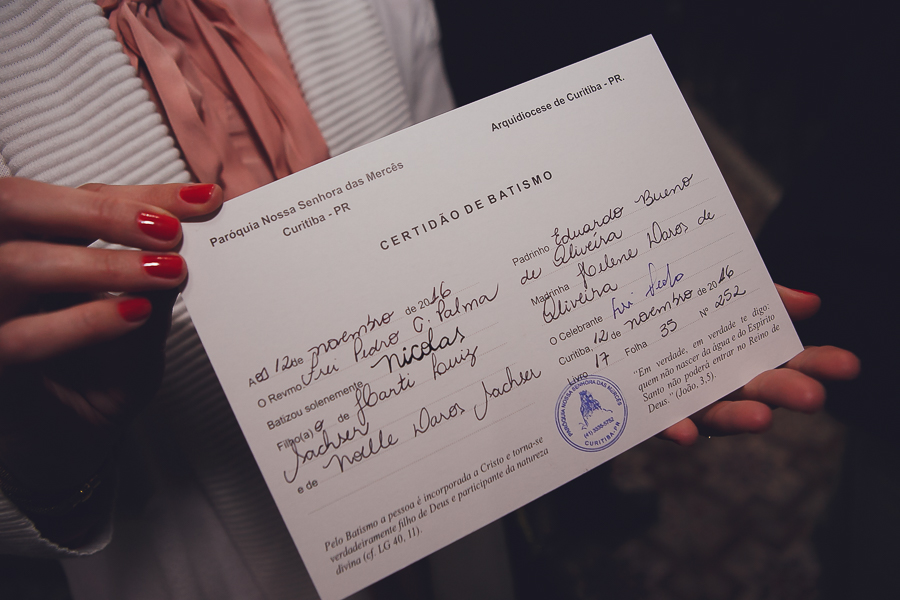 Paróquia Nossa Senhora das Mercês
Curitiba - PR
Arquidiocese de Curitiba - PR.
CERTIDÃO DE BATISMO
Aos 12 de novembro de 2016
O Revmo. Frei Pedro C. Palma
Batizou solenemente Nicolas
Filho(a) o de Harti Luiz
Sachser
e de Noelle Daros Sachser
Pelo Batismo a pessoa é incorporada a Cristo e torna-se
verdadeiramente filho de Deus e participante da natureza
divina (cf. LG 40, 11).
Padrinho Eduardo Bueno
de Oliveira
Madrinha Helene Daros de
Oliveira
O Celebrante Frei Pedro
Curitiba, 12 de novembro de 2016
Livro 17 Folha 35 Nº 252
"Em verdade, em verdade te digo:
quem não nascer da água e do Espírito
Santo não poderá entrar no Reino de
Deus." (João, 3,5).
PARÓQUIA NOSSA SENHORA DAS MERCÊS
(41) 3335-5752
CURITIBA-PR